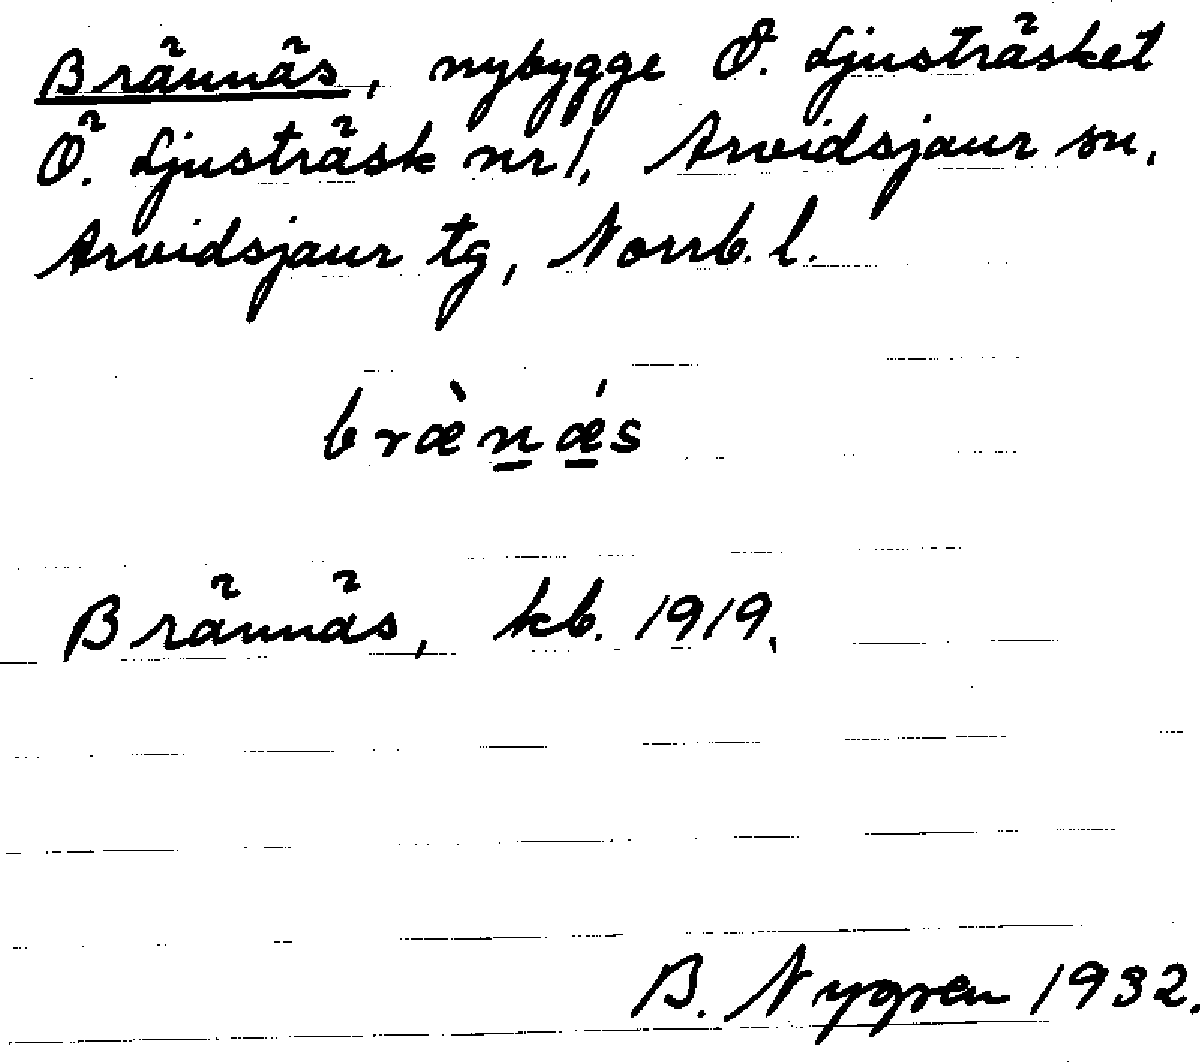 Brännäs, nybygge Ö. Ljusträsket
Ö. Ljusträsk nr 1, Arvidsjaur sn,
Arvidsjaur tg, Norrb. l.
bræ̀nǽs
Brännäs, kb. 1919.
B. Nygren 1932.